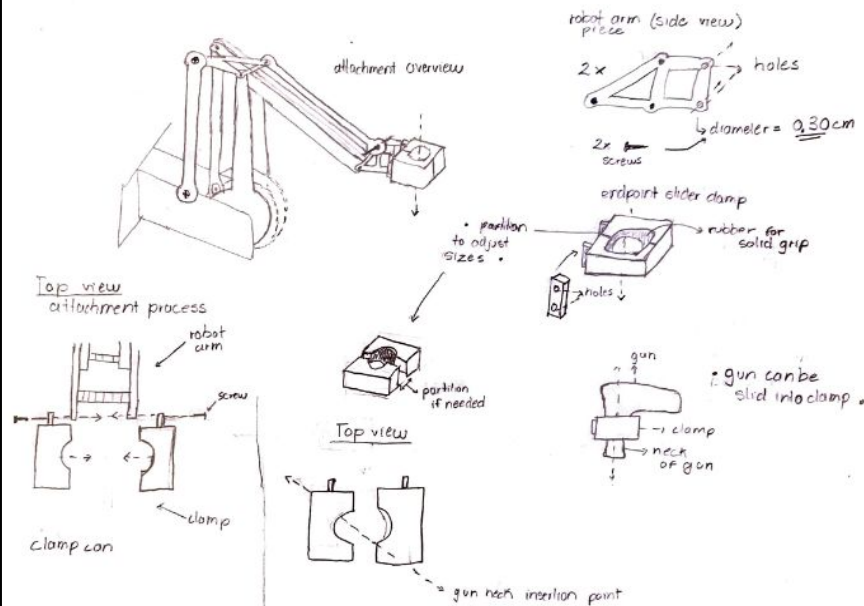 attachment overview
robot arm (side view)
piece
2x
holes
diameter = 0.30cm
2x
screws
endpoint slider clamp
• partition
to adjust
sizes •
rubber for
solid grip
holes
Top view
attachment process
robot
arm
screw
clamp
clamp can
partition
if needed
Top view
gun neck insertion point
gun
• gun can be
slid into clamp.
clamp
neck
of gun